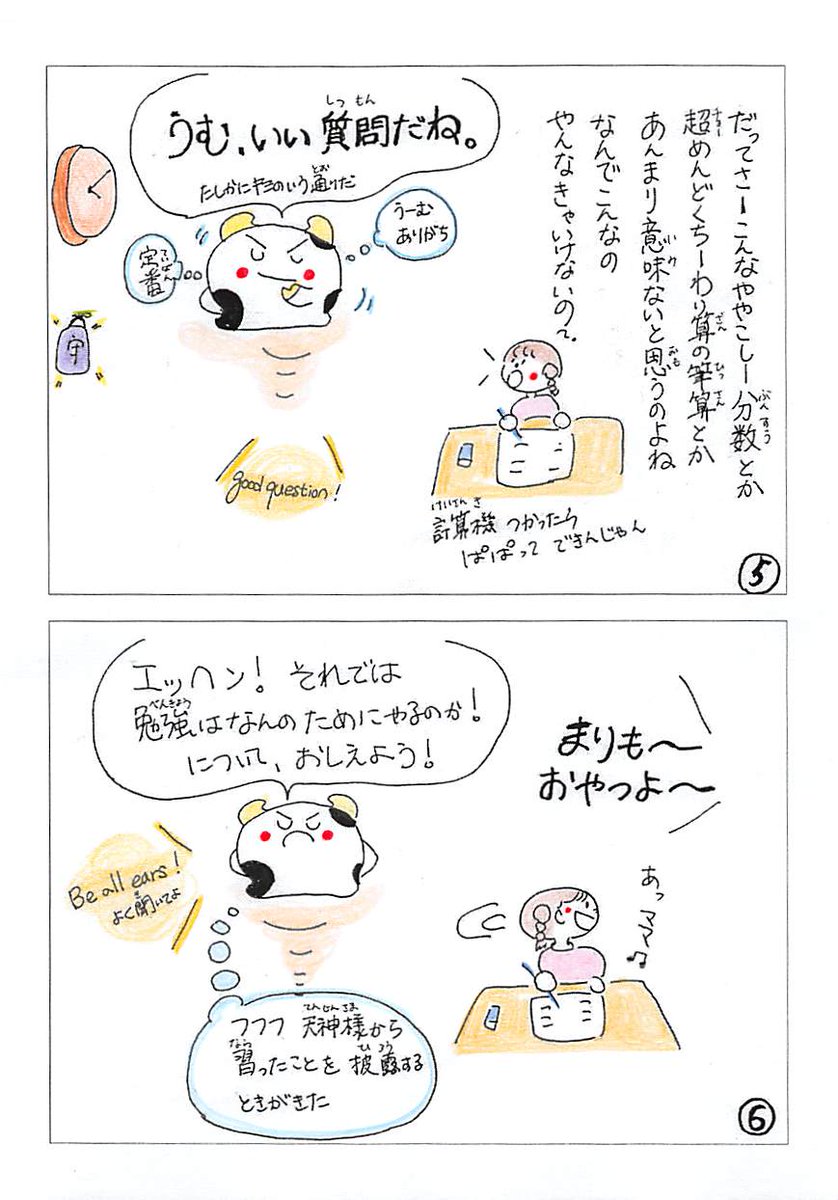 だってさーこんなややこしー分数とか
超めんどくちーわり算の筆算とか
あんまり意味ないと思うのよね
なんでこんなの
やんなきゃいけないの？
計算機 つかったら
ぱぱって できんじゃん
うむ、いい質問だね。
たしかにキミのいう通りだ
うーむ
ありがち
定番
守
good question!
5
まりも〜
おやつよ〜
あっ ママ♫
エッヘン！それでは
勉強はなんのためにやるのか！
について、おしえよう！
Be all ears!
よく聞いてよ
フフフ 天神様から
習ったことを 披露する
ときがきた
6